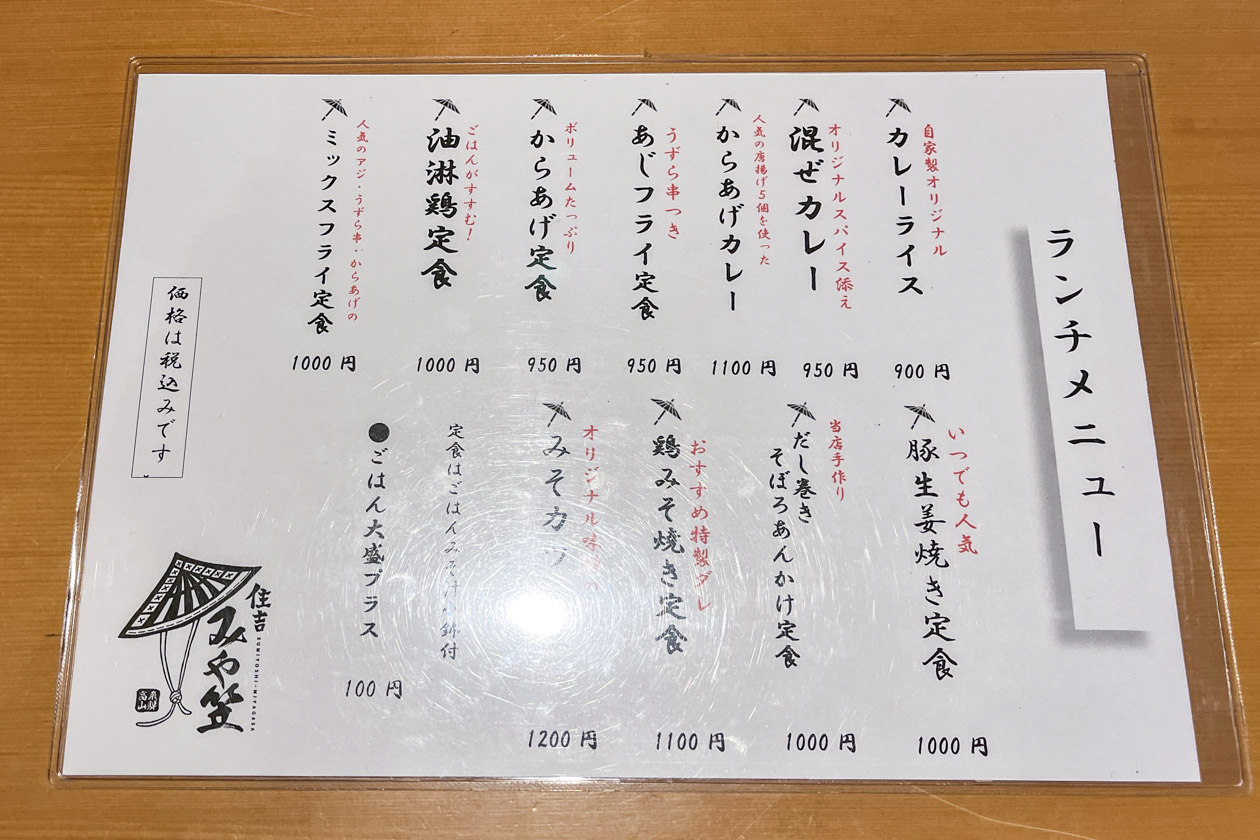 ランチメニュー
自家製オリジナル
カレーライス
900円
オリジナルスパイス添え
混ぜカレー
950円
人気の唐揚げ5個を使った
からあげカレー
1100円
うずら串つき
あじフライ定食
950円
ボリュームたっぷり
からあげ定食
950円
ごはんがすすむ!
油淋鶏定食
1000円
人気のアジ・うずら串・からあげの
ミックスフライ定食
1000円
いつでも人気
豚生姜焼き定食
1000円
当店手作り
だし巻き
そぼろあんかけ定食
1000円
おすすめ特製ダレ
鶏みそ焼き定食
1100円
オリジナル
みそカツ
1200円
定食はごはんみそ汁小鉢付
●ごはん大盛プラス
100円
価格は税込みです
住吉
みや笠
SUMIYOSHI-MIYAGASA
飛騨
高山